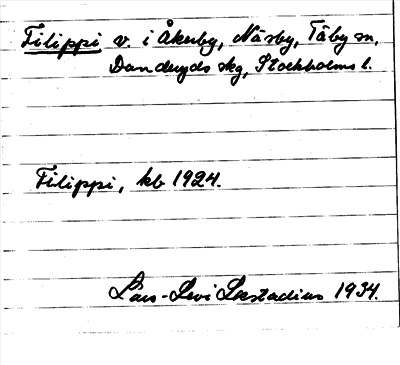 Filippi v. i Åkerby, Näsby, Täby sn,
Danderyds skg, Stockholms l.
Filippi, kb 1924.
Lars-Levi Læstadius 1934.